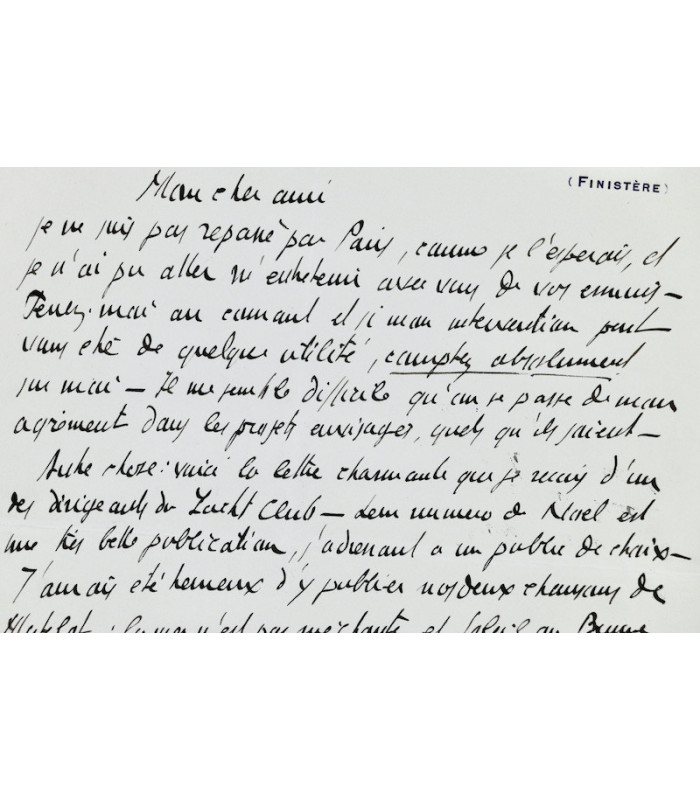 (FINISTÈRE)
Mon cher ami
je ne suis pas repassé par Paris, comme je l'espérais, et
je n'ai pu aller m'entretenir avec vous de vos ennuis –
Tenez-moi au courant et si mon intervention peut
vous être de quelque utilité, comptez absolument
sur moi – Il me semble difficile qu'on se passe de mon
agrément dans les projets envisagés, quels qu'ils soient –
Autre chose : voici la lettre charmante que je reçois d'un
des dirigeants du Yacht Club – Leur numero de Noël est
une très belle publication, s'adressant a un public de choix –
J'aurais été heureux d'y publier nos deux chansons de
Matelot : la mer n'est pas méchante et Soleil au